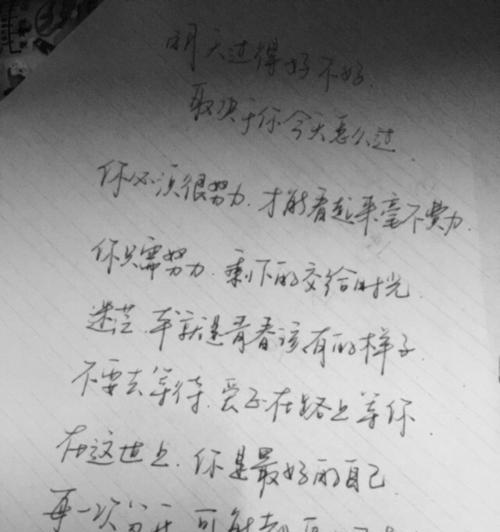 明天过得好不好.
取决于你今天怎么过.
你必须很努力.才能看起来毫不费力.
你只需努力.剩下的交给时光.
迷茫.本就是青春该有的样子.
不要去等待.爱正在路上等你.
在这世上.你是最好的自己
再一次 可能